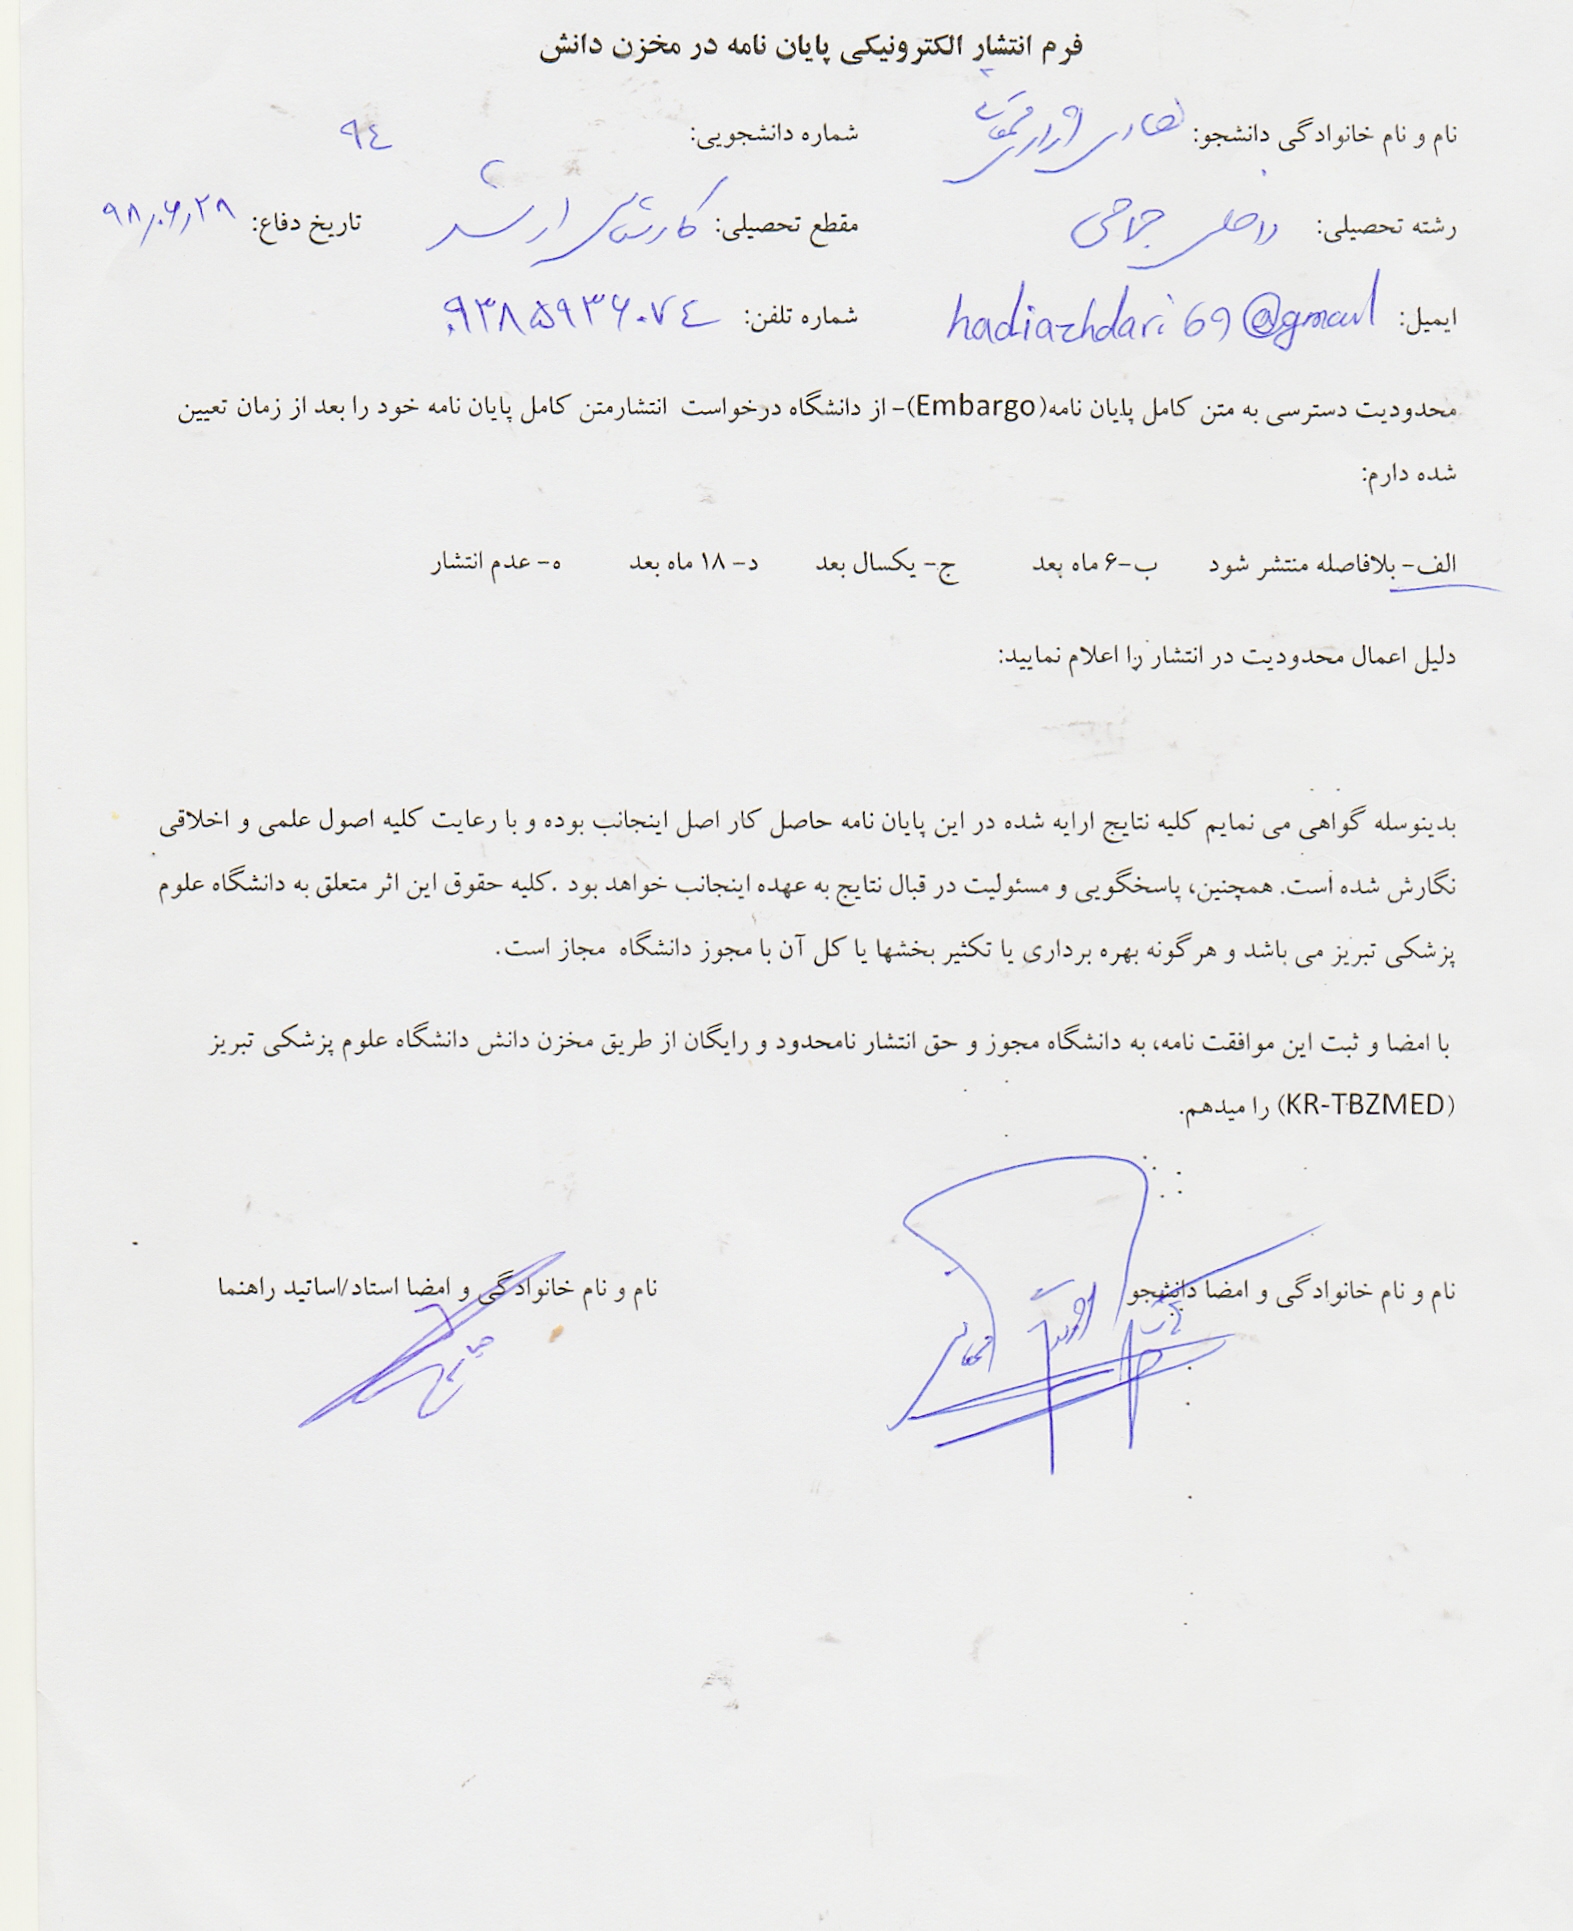 فرم انتشار الکترونیکی پایان نامه در مخزن دانش
نام و نام خانوادگی دانشجو: هادی اژدری شماره دانشجویی: ۹٤
رشته تحصیلی: داخلی جراحی مقطع تحصیلی: کارشناسی ارشد تاریخ دفاع: ۹۸٫۰۶٫۲۸
ایمیل: hadiazhdari69@gmail شماره تلفن: ۰۹۳۸۵۹۳۶۰۷٤
محدودیت دسترسی به متن کامل پایان نامه(Embargo)- از دانشگاه درخواست انتشارمتن کامل پایان نامه خود را بعد از زمان تعیین
شده دارم:
الف- بلافاصله منتشر شود ب-۶ ماه بعد ج- یکسال بعد د- ۱۸ ماه بعد ه- عدم انتشار
دلیل اعمال محدودیت در انتشار را اعلام نمایید:
بدینوسله گواهی می نمایم کلیه نتایج ارایه شده در این پایان نامه حاصل کار اصل اینجانب بوده و با رعایت کلیه اصول علمی و اخلاقی
نگارش شده است. همچنین، پاسخگویی و مسئولیت در قبال نتایج به عهده اینجانب خواهد بود .کلیه حقوق این اثر متعلق به دانشگاه علوم
پزشکی تبریز می باشد و هرگونه بهره برداری یا تکثیر بخشها یا کل آن با مجوز دانشگاه مجاز است.
با امضا و ثبت این موافقت نامه، به دانشگاه مجوز و حق انتشار نامحدود و رایگان از طریق مخزن دانش دانشگاه علوم پزشکی تبریز
(KR-TBZMED) را میدهم.
نام و نام خانوادگی و امضا دانشجو نام و نام خانوادگی و امضا استاد/اساتید راهنما